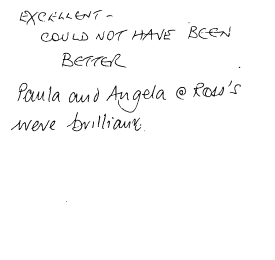 EXCELLENT -
COULD NOT HAVE BEEN
BETTER
Paula and Angela @ Ross's
were brilliant.